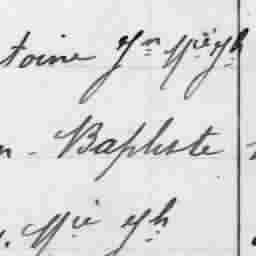 toine Jn Mie Jh
n. Baptiste
. Mie Jh